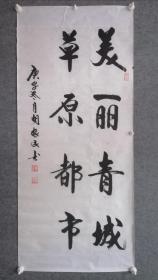 美丽青城
草原都市
庚子冬月胡
书